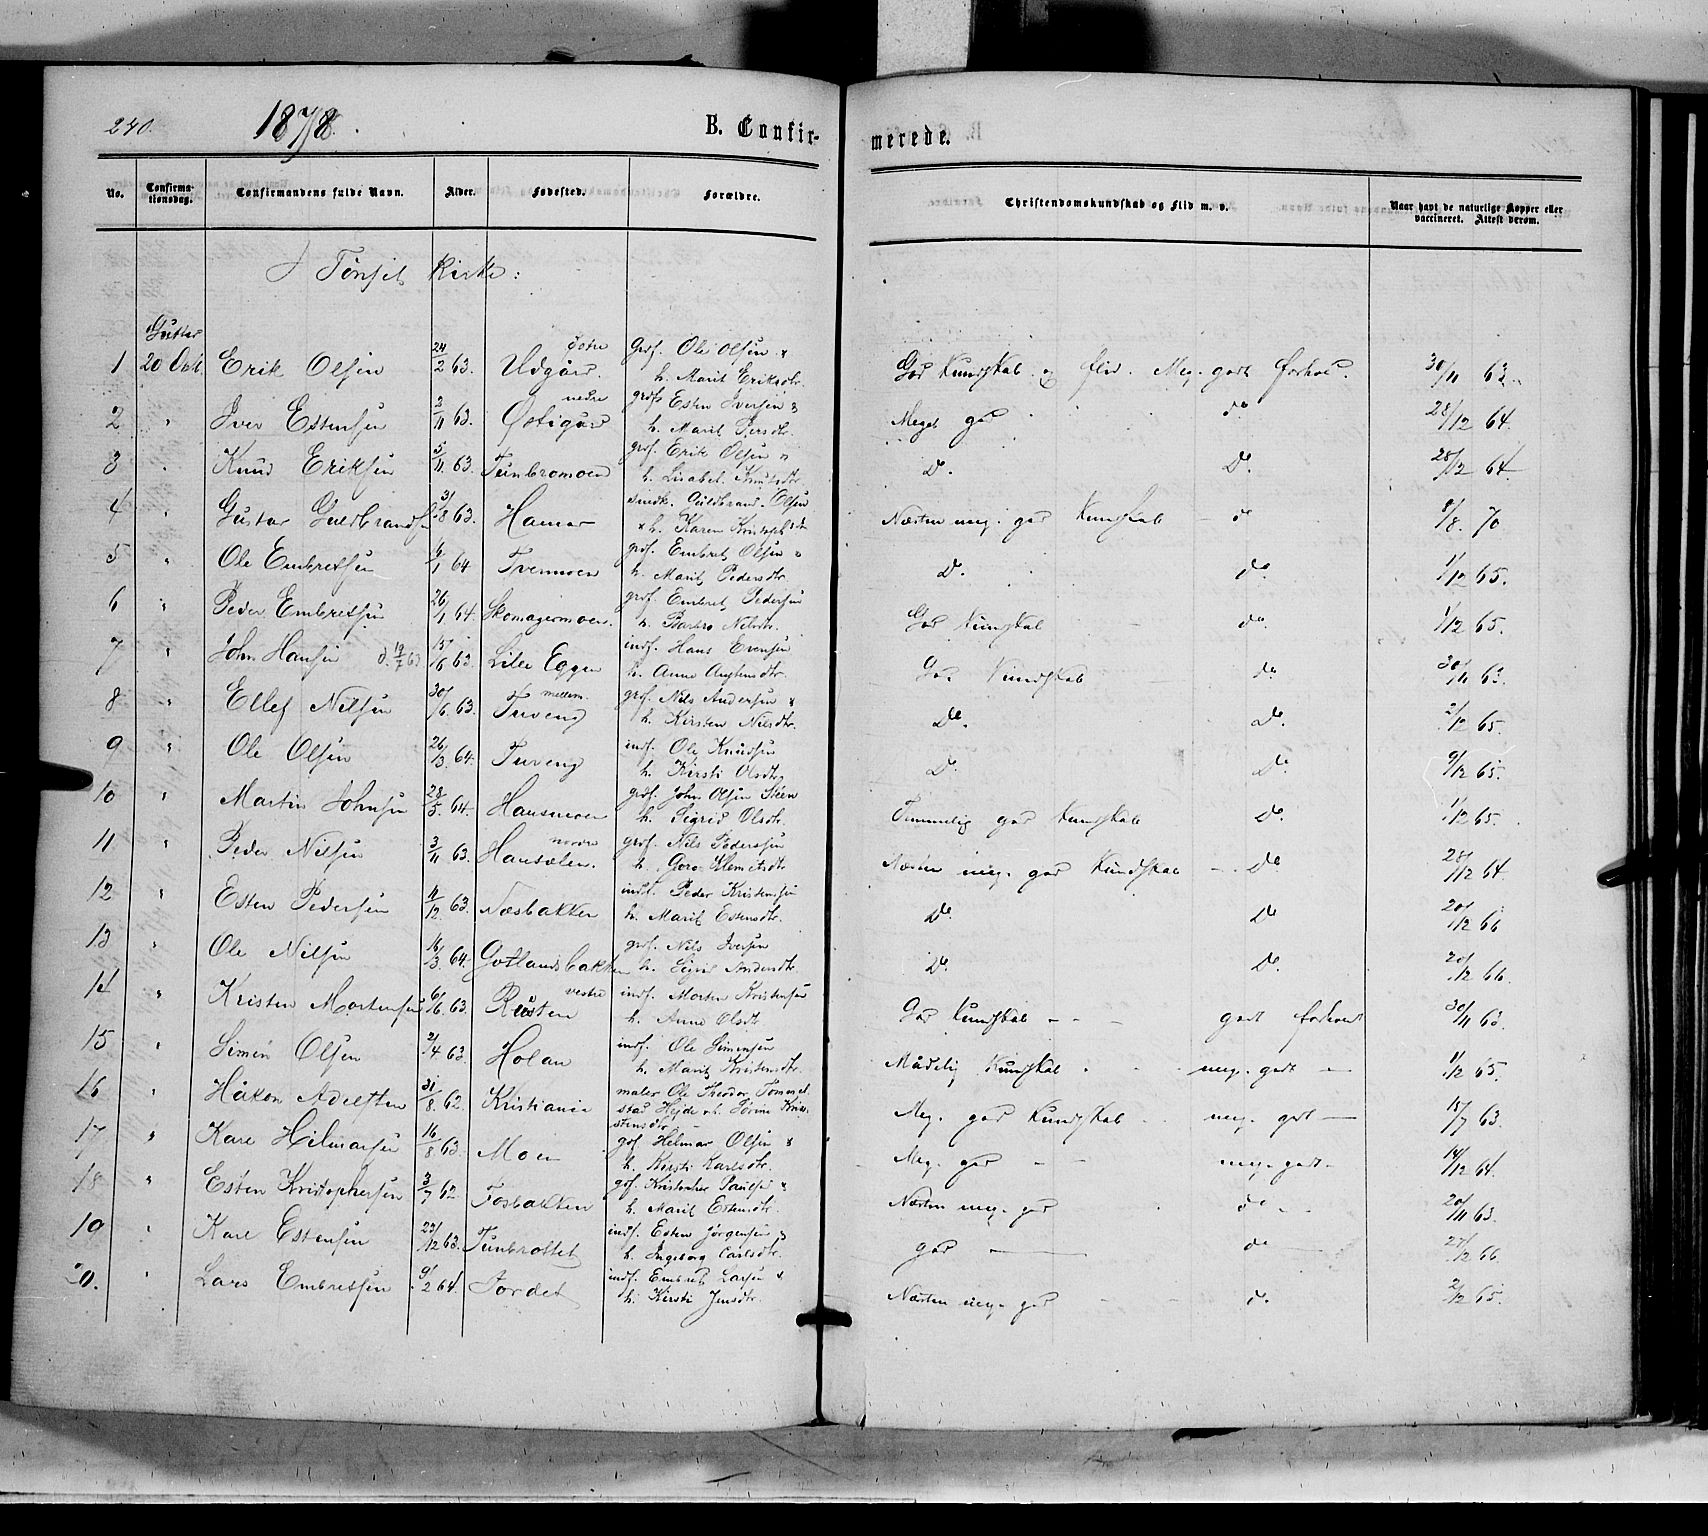 240. 1878. B. Confir- merede.
No. Confirma-tionsdag. Confirmandens fulde Navn. Alder. Fødested. Forældre. Christendomskundskab og Flid m. v. Naar havt de naturlige Kopper eller vaccineret. Attest derom.
I Tønset Kirke:
Gutter
1 20 Oct. Erik Olsen 24/2 63. Udgård østre Grdf. Ole Olsen & h. Marit Eriksdtr. God Kundskab og flid. Meg. godt forhol. 30/11 63.
2 " Iver Estensen 3/11 63. Østigård nedre grdf. Esten Iversen & h. Marit Persdtr. Meget god do 28/12 64.
3 " Knud Eriksen 5/11 63. Tunbromoen grdf. Erik Olsen & h. Lisabet Knudsdtr. Do. Do. 28/12 64
4 " Gustav Gulbrandsen 31/8 63. Hamar snedk. Guldbrand Olsen & h. Karen Kristophdtr Næsten meg. god Kundskab - do 9/8. 70
5 " Ole Embretsen 4/1 64 Tvenmoen grdf. Embret Olsen & h. Marit Pedersdtr. Do. do. 1/12 65.
6 " Peder Embretsen 26/1 64. Skomagermoen. grdf. Embret Pedersen h. Barbro Nilsdtr. God Kundskab do. 1/12 65.
7 " John Hansen d. 19/7 63 15/6 63. Lille Eggen indf. Hans Evensen h. Anne Estensdtr. God Kundskab do. 30/11 63.
8 " Ellef Nilsen 30/6 63. Tuveng mellem. grdf. Nils Andersen & h. Kirsten Nilsdtr. Do. do. 2/12 65.
9 " Ole Olsen 26/3 64. Tuveng indf. Ole Knudsen h. Kirsti Olsdtr. Do. Do. 9/12 65.
10 " Martin Johnsen 28/5 64. Hansmoen grdf. John Olsen Steen h. Sigrid Olsdtr. Temmelig god Kundskab Do. 1/12 65.
11 " Peder Nilsen 3/11 63. Hansælen. nordre grdf. Nils Pedersen h. Goro Klemetsdtr Næsten meg. god Kundskab - Do 28/12 64.
12 " Esten Pedersen 4/12 63. Næsbakken indf. Peder Kristensen h. Marit Estensdtr. Do. Do 20/12 66
13 " Ole Nilsen 16/3 64. Gotlandsbakken grdf. Nils Iversen h. Sigrid Andersdtr. Do. Do. 20/12 66.
14 " Kristen Mortensen 6/6 63. Rusten vestre indf. Morten Kristensen h. Anne Olsdtr God Kundskab - - godt forhold 30/11 63.
15 " Simen Olsen 2/4 63. Holan indf. Ole Simensen h. Marit Kristensdtr. Mådelig Kundskab meg. godt - 1/12 65.
16 " Håkon Adelsten 31/8 62. Kristiania maler Ole Theodor Tommelstad Hejde & h. Sørine Kristensdtr - Meg. god Kundskab meg. godt - 15/7 63.
17 " Karl Hilmarsen 16/8 63. Moen gdf. Helmar Olsen & h. Kirsti Karlsdtr. Meg. god - - meg. godt - 14/12 64.
18 " Esten Kristophersen 3/7 62. Fosbakken gdf. Kristopher Paulsen & h. Marit Estensdtr. Næsten meg. god do - 20/11 63.
19 " Karl Estensen 23/12 63. Tunbrottet indf. Esten Jørgensen & h. Ingeborg Carlsdtr. god - do - 27/12 66.
20. " Lars Embretsen 9/2 64. Jordet indf. Embret Larsen & h. Kirsti Jensdtr. Næsten meg. god - do. 2/12 65.